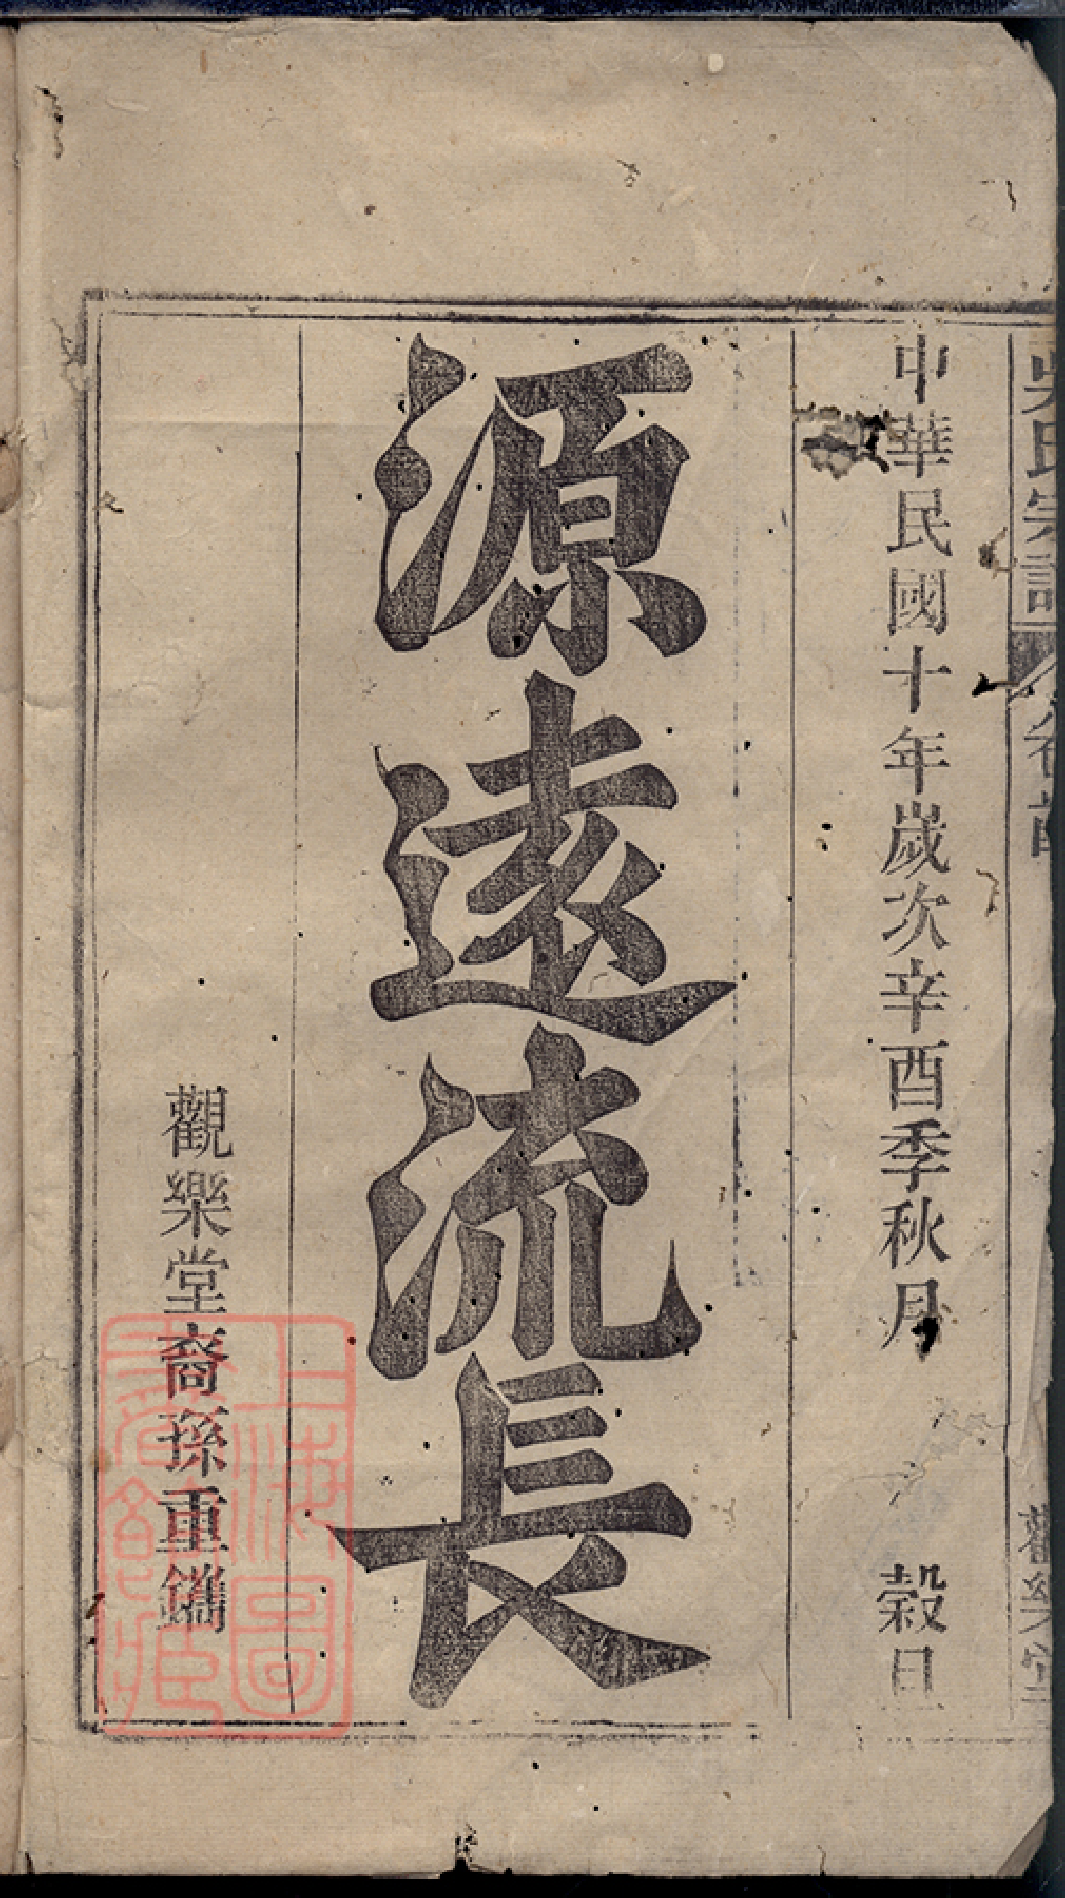 吳氏宗譜
卷首
觀樂堂
中華民國十年歲次辛酉季秋月 穀旦
源遠流長
觀樂堂裔孫重鐫
上海圖書館藏